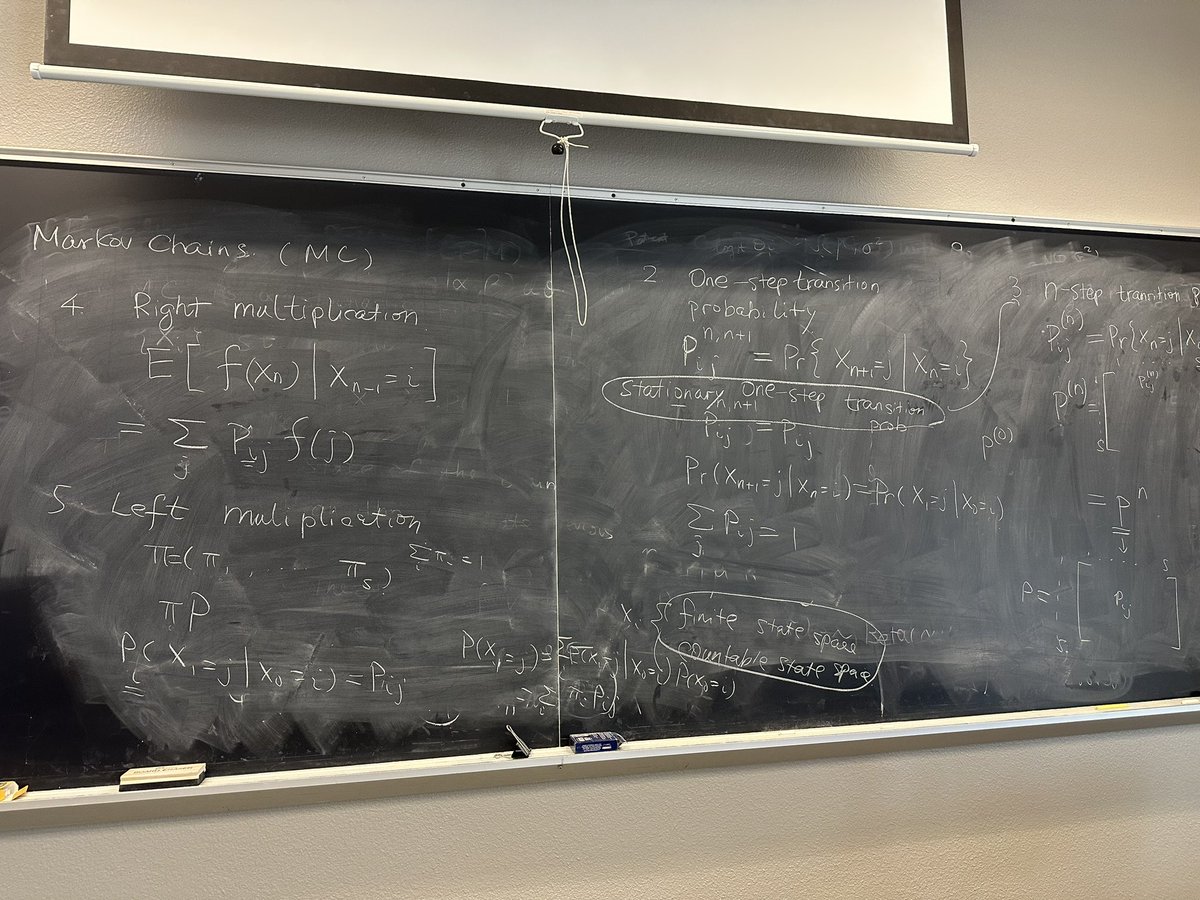 Markov Chains (MC)
4. Right multiplication
E[ f(Xn) | Xn-1=i ]
= Σj Pij f(j)
5. Left muliplication
π=(π1, ... πs) Σπi=1
πP
Pr( X1=j | X0=i ) = Pij
P(X1=j) = | X0=i) P(X0=i)
= Σi πi Pij
2. One-step transition
probability
Pij^n,n+1 = Pr{ Xn+1=j | Xn=i}
Stationary One-step transition
prob
Pij^n,n+1 = Pij
Pr(Xn+1=j | Xn=i) = Pr(X1=j | X0=i)
Σj Pij = 1
Xi { finite state space
countable state space
3. n-step transition
Pij^(n) = Pr{Xn=j | X
P^(n) = [ Pij^(n)
s
P^(0)
= P^n
P = [ Pij ]
s